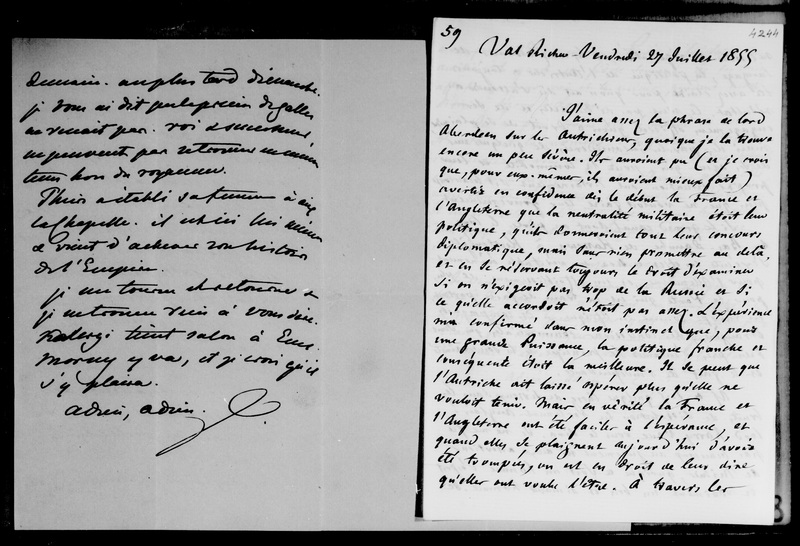 demain. au plus tard dimanche.
je vous ai dit que le prince de galles
ne venait pas. roi & successeur
ne peuvent pas se trouver en même
tems hors du royaume.
Thiers a établi sa femme à aix
la Chapelle. il est ici lui même
& vient d'achever son histoire
de l'Empire.
je me tourne & retourne &
je ne trouve rien à vous dire.
Kalergi tient salon à Ems.
Morny y va, et je crois qu'il
s'y plaira.
adieu, adieu.
59
4244
Val Richer - Vendredi 27 Juillet 1855
J'aime assez la phrase de lord
Aberdeen sur les Autrichiens, quoique je la trouve
encore un peu sévère. Ils auroient pu (et je crois
que, pour eux-mêmes, ils auroient mieux fait)
avertir en confidence dès le début la France et
l'Angleterre que la neutralité militaire étoit leur
politique, qu'ils donneroient tout leur concours
diplomatique, mais sans rien promettre au delà,
et en se réservant toujours le droit d'examiner
si on n'exigeoit pas trop de la Russie et si
ce qu'elle accordoit n'étoit pas assez. L'expérience
m'a confirmé dans mon instinct que, pour
une grande Puissance, la politique franche et
conséquente étoit la meilleure. Il se peut que
l'Autriche ait laissé espérer plus qu'elle ne
vouloit tenir. Mais en vérité la France et
l'Angleterre ont été faciles à l'espérance, et
quand elles se plaignent aujourd'hui d'avoir
été trompées, on est en droit de leur dire
qu'elles ont voulu l'être. À travers les